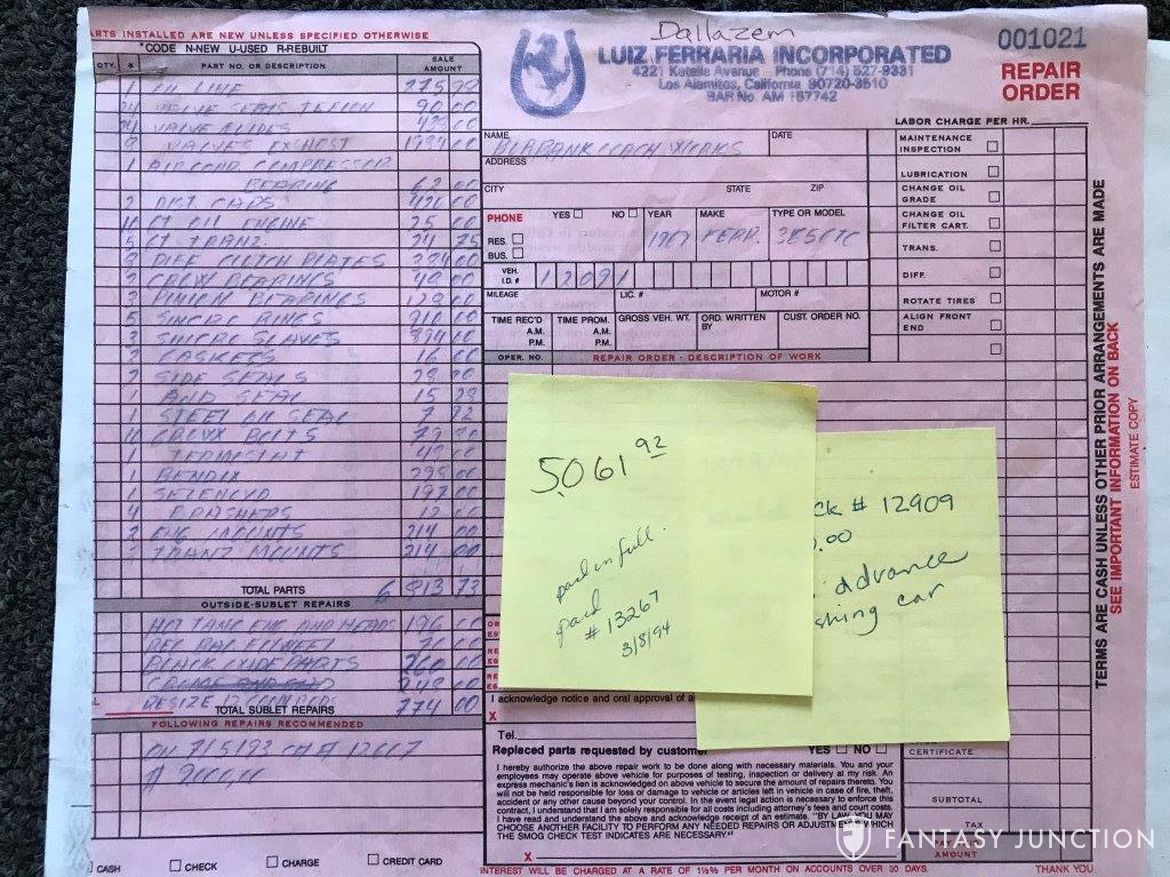 Dallazem
LUIZ FERRARIA INCORPORATED
4221 Katella Avenue - Phone (714) 527-9331
Los Alamitos, California 90720-3510
BAR No. AM 157742
001021
REPAIR
ORDER
ARTS INSTALLED ARE NEW UNLESS SPECIFIED OTHERWISE
*CODE N-NEW U-USED R-REBUILT
QTY. * PART NO. OR DESCRIPTION SALE AMOUNT
1 OIL LINE
24 VALVE SEALS TEFLON 90 00
24 VALVE GUIDES
8 VALVES EXHOST
1 AIRCOND COMPRESSOR
BEARING 62 00
2 DIST CAPS 420 00
OIL ENGINE 25 00
5 QT TRANZ. 24 75
DIFF CLUTCH PLATES
2 BEARINGS
2 PINION BEARINGS
5 SINCRO RINGS 910 00
3 SINCRO SLAVES
2 GASKETS 16 00
2 SIDE SEALS
1 SEAL 15
1 STEEL OIL SEAL 7 92
BOLTS
1
1 BENDIX 295 00
1 197 00
4
2 ENG MOUNTS 214 00
2 TRANZ MOUNTS 214 00
TOTAL PARTS 6 813 73
OUTSIDE-SUBLET REPAIRS
HOT TANC ENG AND HEADS 196 00
BLACK OXIDE PARTS 260 00
248 00
RESIZE 12
TOTAL SUBLET REPAIRS 774 00
FOLLOWING REPAIRS RECOMMENDED
ON 7/5/93
CASH CHECK CHARGE CREDIT CARD
LABOR CHARGE PER HR.
NAME BURBANK COACH WORKS DATE
ADDRESS
CITY STATE ZIP
PHONE YES NO YEAR MAKE TYPE OR MODEL
RES.
BUS.
1967 FERR.
VEH. I.D. # 12091
MILEAGE LIC. # MOTOR #
TIME REC'D TIME PROM. GROSS VEH. WT. ORD. WRITTEN BY CUST. ORDER NO.
A.M. A.M.
P.M. P.M.
OPER. NO. REPAIR ORDER - DESCRIPTION OF WORK
MAINTENANCE INSPECTION
LUBRICATION
CHANGE OIL GRADE
CHANGE OIL FILTER CART.
TRANS.
DIFF.
ROTATE TIRES
ALIGN FRONT END
5,061 92
paid in full
paid
# 13267
3/8/94
ck # 12909
.00
advance
shing car
I acknowledge notice and oral approval of a
X
Tel.
Replaced parts requested by customer YES NO
I hereby authorize the above repair work to be done along with necessary materials. You and your
employees may operate above vehicle for purposes of testing, inspection or delivery at my risk. An
express mechanic's lien is acknowledged on above vehicle to secure the amount of repairs thereto. You
will not be held responsible for loss or damage to vehicle or articles left in vehicle in case of fire, theft,
accident or any other cause beyond your control. In the event legal action is necessary to enforce this
contract, I understand that I am solely responsible for all costs including attorney's fees and court costs.
I have read and understand the above and acknowledge receipt of an estimate. "BY LAW, YOU MAY
CHOOSE ANOTHER FACILITY TO PERFORM ANY NEEDED REPAIRS OR ADJUSTMENTS WHICH
THE SMOG CHECK TEST INDICATES ARE NECESSARY."
X
CERTIFICATE
SUBTOTAL
TAX
AMOUNT
INTEREST WILL BE CHARGED AT A RATE OF 1½% PER MONTH ON ACCOUNTS OVER 30 DAYS. THANK YOU
TERMS ARE CASH UNLESS OTHER PRIOR ARRANGEMENTS ARE MADE
SEE IMPORTANT INFORMATION ON BACK
ESTIMATE COPY
FANTASY JUNCTION